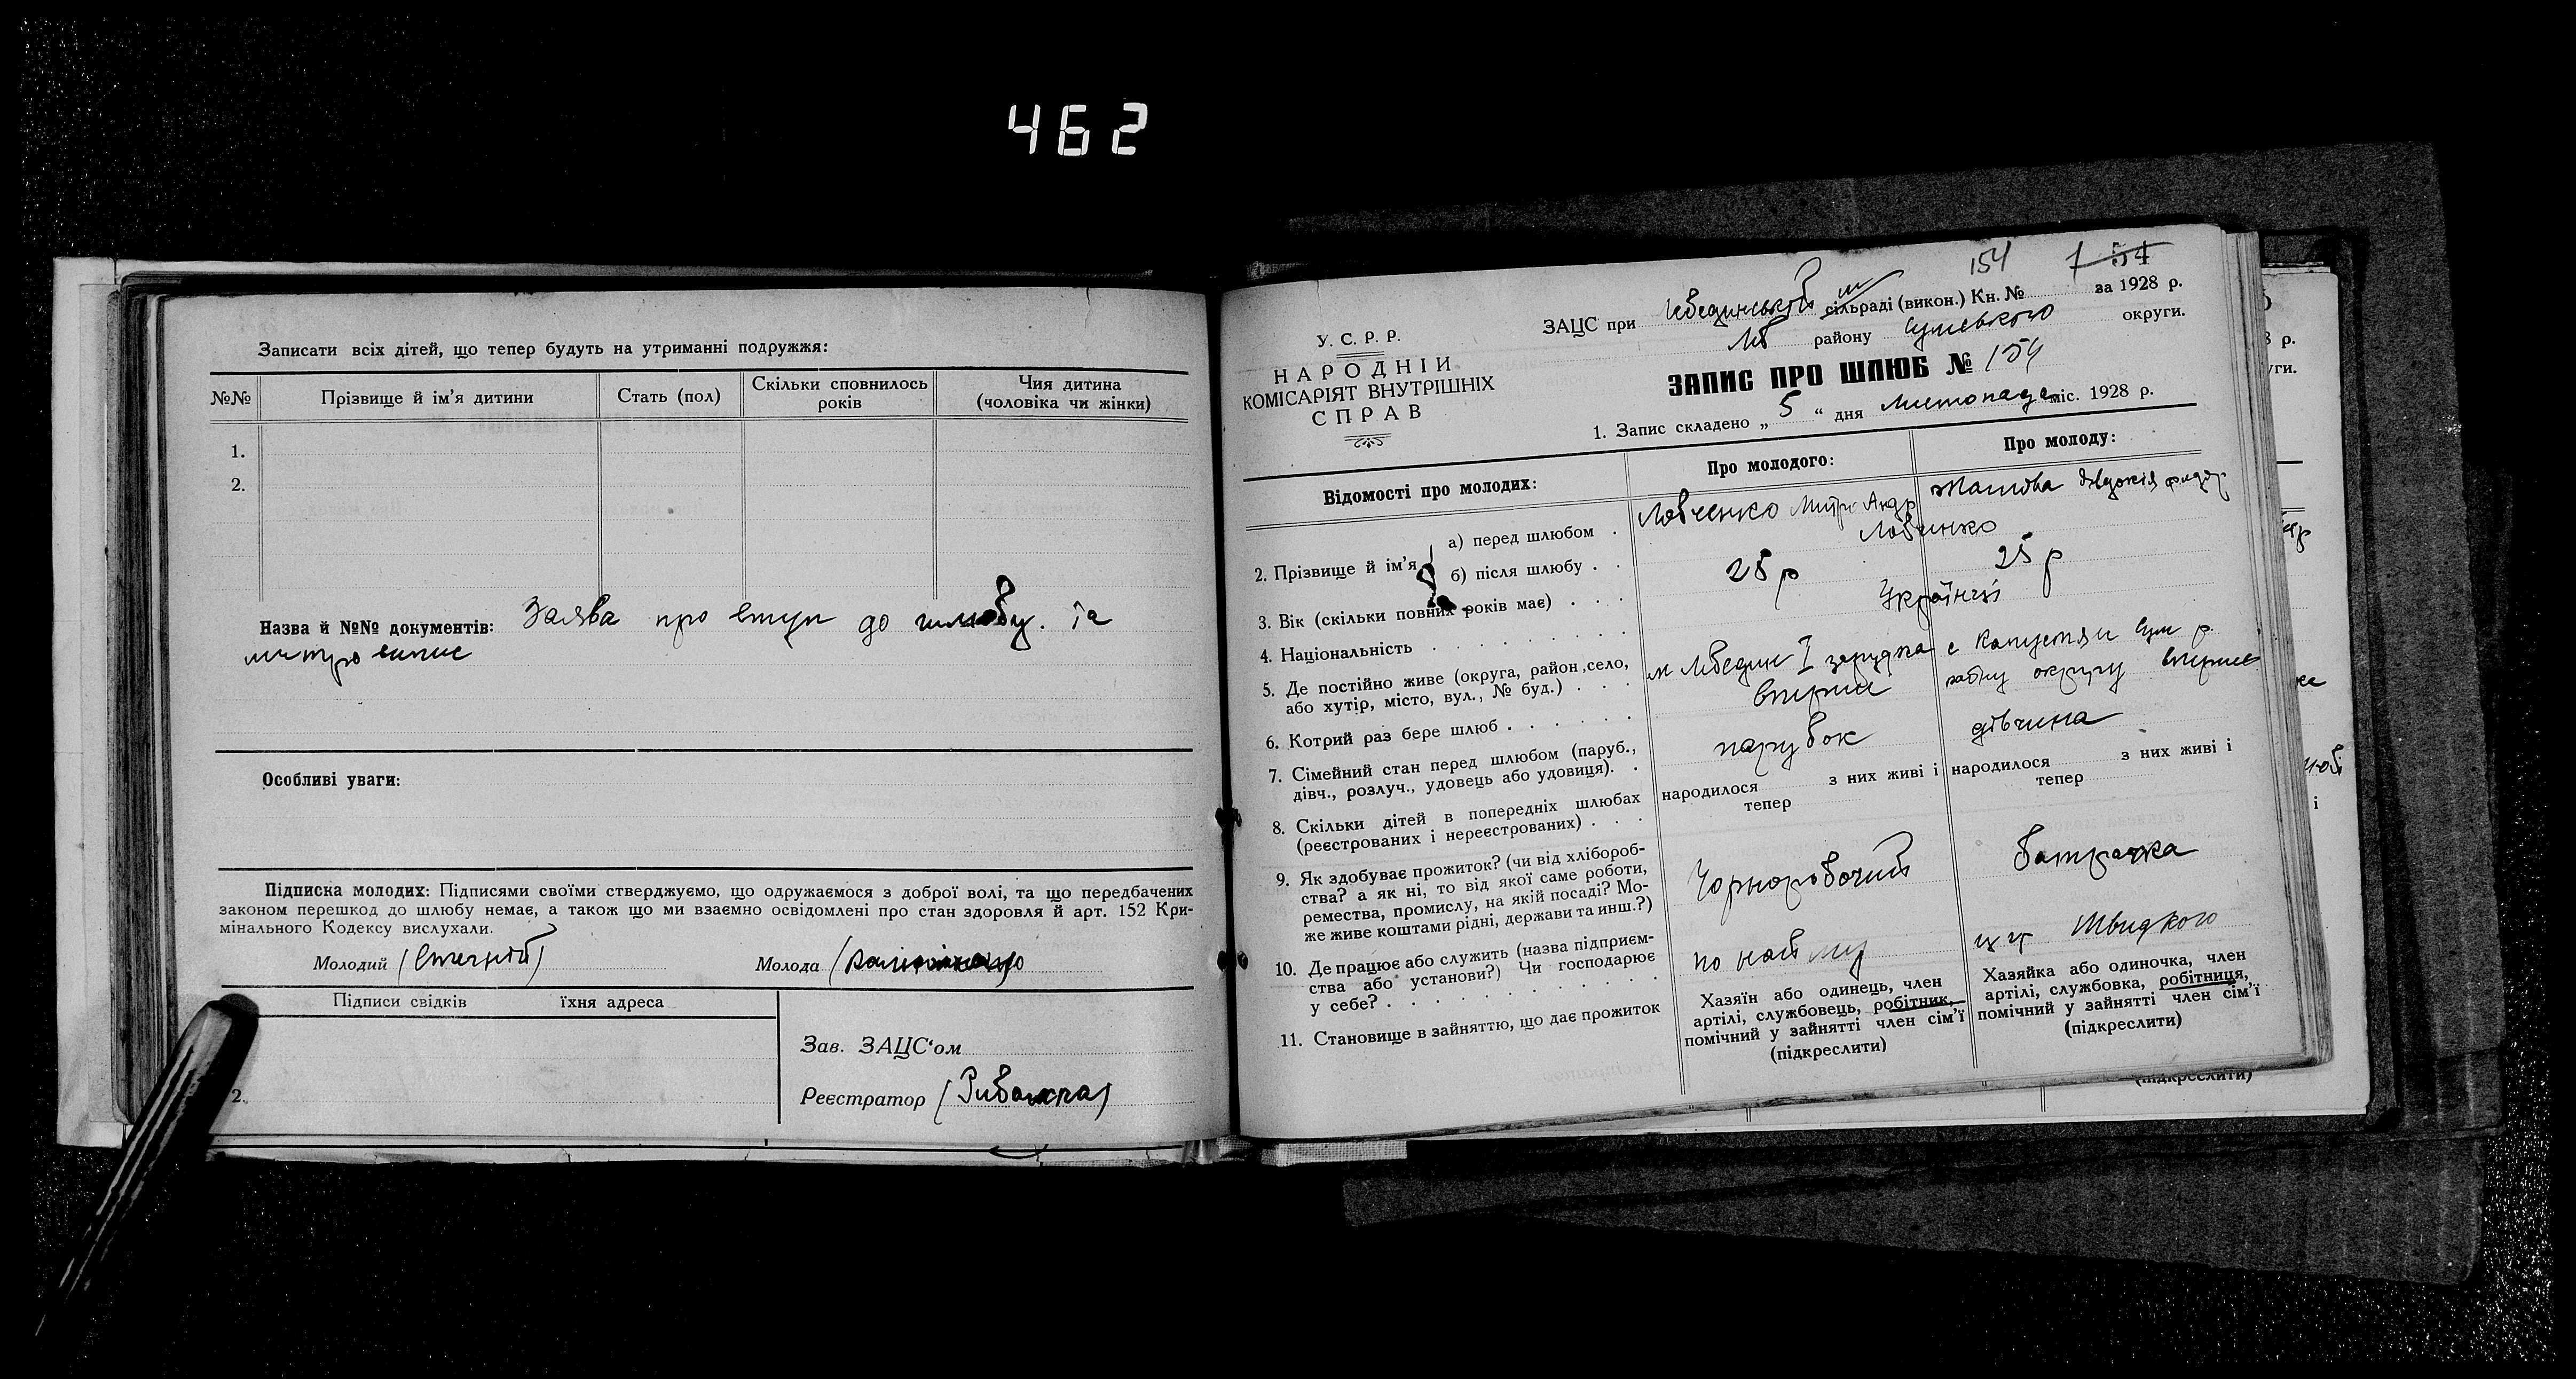 462
Записати всіх дітей, що тепер будуть на утриманні подружжя:
№№ Прізвище й ім'я дитини Стать (пол) Скільки сповнилось років Чия дитина (чоловіка чи жінки)
1.
2.
Назва й №№ документів: Заява про вступ до шлюбу. Та
метро випис
Особливі уваги:
Підписка молодих: Підписями своїми стверджуємо, що одружаємося з доброї волі, та що передбачених
законом перешкод до шлюбу немає, а також що ми взаємно освідомлені про стан здоровля й арт. 152 Кри-
мінального Кодексу вислухали.
Молодий Молода
Підписи свідків їхня адреса
Зав. ЗАЦС'ом
2.
Реєстратор
154 154
ЗАЦС при Лебединській сільраді (викон.) Кн. № за 1928 р.
Леб району Сумського округи.
У. С. Р. Р.
НАРОДНІЙ
КОМІСАРІЯТ ВНУТРІШНІХ
СПРАВ
ЗАПИС ПРО ШЛЮБ № 154
1. Запис складено „ 5 “ дня Листопада міс. 1928 р.
Відомості про молодих: Про молодого: Про молоду:
2. Прізвище й ім'я
а) перед шлюбом . Ловченко Митро Андр Явдокія Федор
б) після шлюбу . . Ловченко
3. Вік (скільки повних років має) . . . 25 р 25 р
4. Національність Українці
5. Де постійно живе (округа, район, село,
або хутір, місто, вул., № буд.) . . .
м Лебедин І
с Капустян Сум р.
округу
6. Котрий раз бере шлюб . . . . . . вперше вперше
7. Сімейний стан перед шлюбом (паруб.,
дівч., розлуч., удовець або удовиця). .
парубок дівчина
8. Скільки дітей в попередніх шлюбах
(реєстрованих і нереєстрованих) . . .
народилося з них живі і
тепер
народилося з них живі і
тепер
9. Як здобуває прожиток? (чи від хлібороб-
ства? а як ні, то від якої саме роботи,
ремества, промислу, на якій посаді? Мо-
же живе коштами рідні, держави та инш.?)
Чорноробочий батрачка
10. Де працює або служить (назва підприєм-
ства або установи?) Чи господарює
у себе? .
по найму
Швидкого
11. Становище в зайняттю, що дає прожиток
Хазяїн або одинець, член
артілі, службовець, робітник,
помічний у зайнятті член сім'ї
(підкреслити)
Хазяйка або одиночка, член
артілі, службовка, робітниця,
помічний у зайнятті член сім'ї
(підкреслити)
(підкреслити)